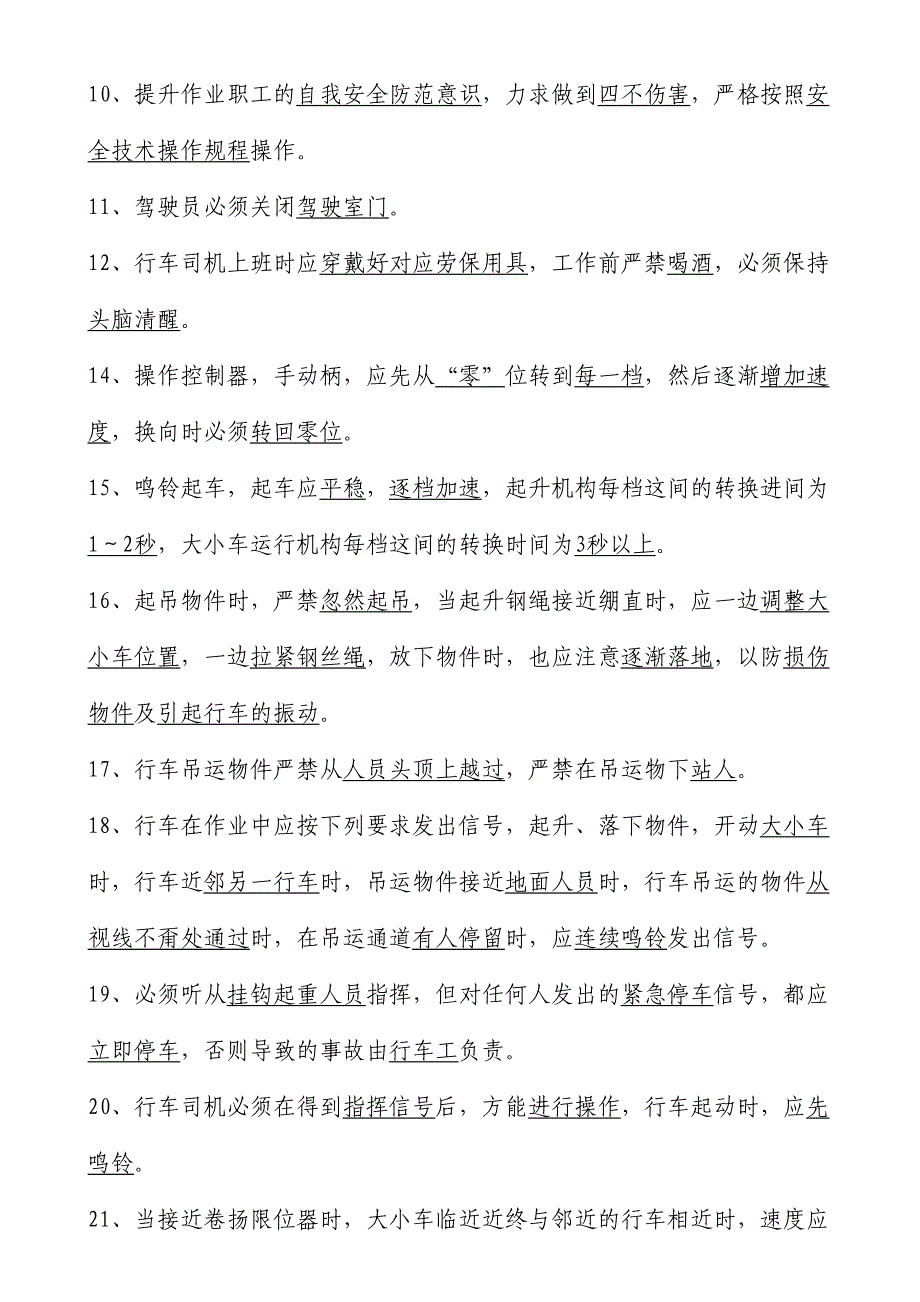 10、提升作业职工的自我安全防范意识，力求做到四不伤害，严格按照安
全技术操作规程操作。
11、驾驶员必须关闭驾驶室门。
12、行车司机上班时应穿戴好对应劳保用具，工作前严禁喝酒，必须保持
头脑清醒。
14、操作控制器，手动柄，应先从“零”位转到每一档，然后逐渐增加速
度，换向时必须转回零位。
15、鸣铃起车，起车应平稳，逐档加速，起升机构每档这间的转换进间为
1～2秒，大小车运行机构每档这间的转换时间为3秒以上。
16、起吊物件时，严禁忽然起吊，当起升钢绳接近绷直时，应一边调整大
小车位置，一边拉紧钢丝绳，放下物件时，也应注意逐渐落地，以防损伤
物件及引起行车的振动。
17、行车吊运物件严禁从人员头顶上越过，严禁在吊运物下站人。
18、行车在作业中应按下列要求发出信号，起升、落下物件，开动大小车
时，行车近邻另一行车时，吊运物件接近地面人员时，行车吊运的物件从
视线不甭处通过时，在吊运通道有人停留时，应连续鸣铃发出信号。
19、必须听从挂钩起重人员指挥，但对任何人发出的紧急停车信号，都应
立即停车，否则导致的事故由行车工负责。
20、行车司机必须在得到指挥信号后，方能进行操作，行车起动时，应先
鸣铃。
21、当接近卷扬限位器时，大小车临近近终与邻近的行车相近时，速度应